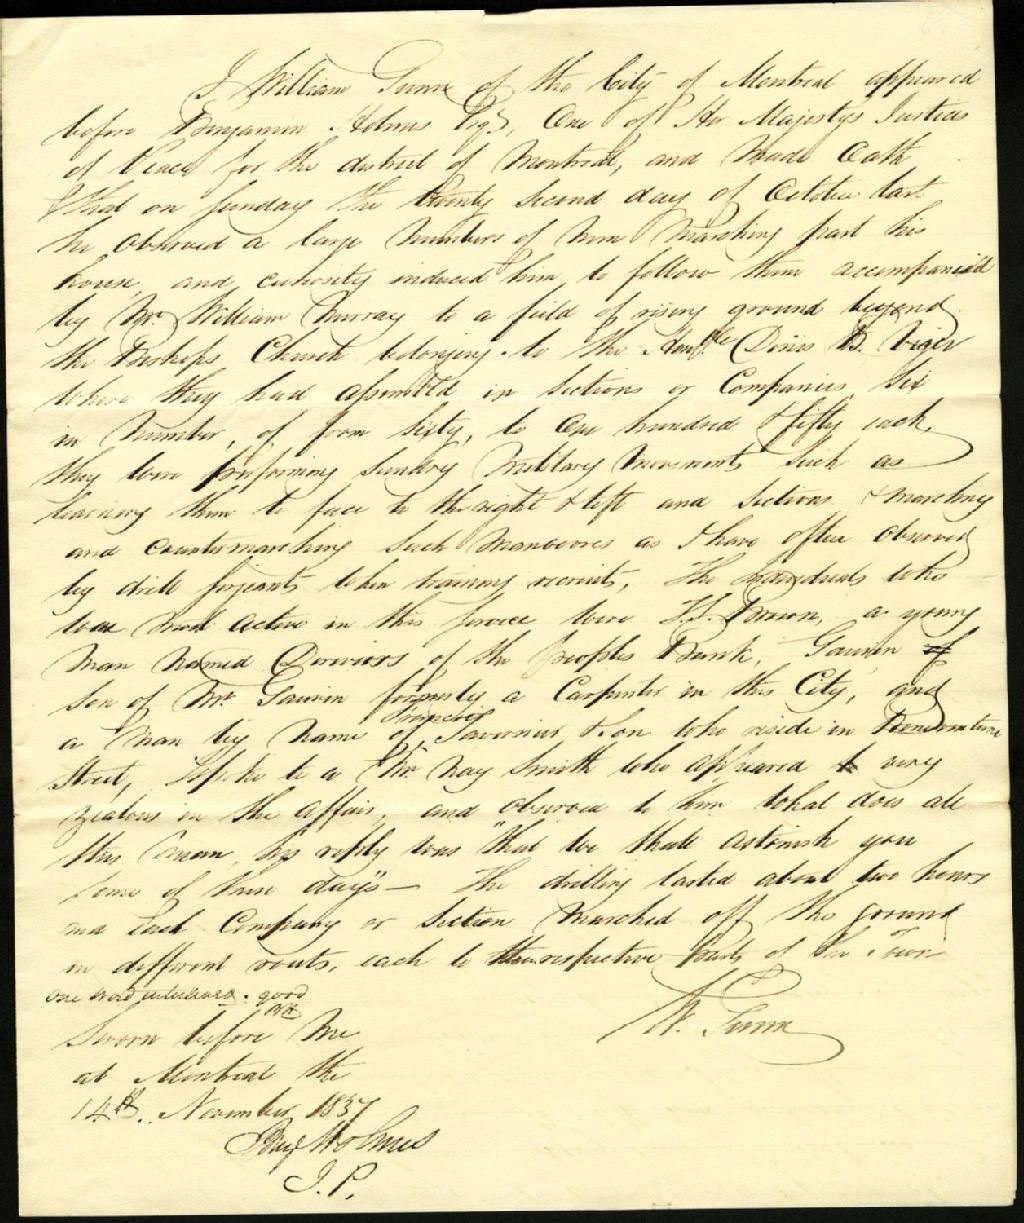 I William Gunn of the City of Montreal appeared
before Benjamin Holmes Esqr, One of Her Majestys Justices
of Peace for the district of Montreal, and Made Oath
that on Sunday the twenty Second day of October last
he observed a large Numbers of Men Marching past his
house, and curiosity induced him to follow them accompanied
by Mr. William Murray to a field of rising ground beyond
the Bishops Church belonging to the Honble Denis B. Viger
where they had assembled in Sections or Companies Six
in Number, of from Sixty, to One hundred & fifty each,
they were performing Sundry Military Movements Such as
learning them to face to the right & left and Sections & marching
and Countermarching Such Manoevres as I have often observed
by drill Serjeants when training recruits, The individuals who
were most active in this Service were T.S. Brown, a young
Man Named of the Peoples Bank, Gauvin
Son of Mr. Gauvin formerly a Carpenter in this City, and
a Man by Name of Francois Tavernier & Son who reside in
Street, I spoke to a Mr. Nay Smith who appeared very
zealous in the affair, and observed to him what does all
this mean, his reply was "that we shall astonish you
some of these days" — The drilling lasted about two hours
and Each Company or Section Marched off the ground
in different routs, each to their respective parts of the Town
One word interlined. good
W. Gunn
Sworn before Me
at Montreal the
14th. November 1837
Benj Holmes
J. P.